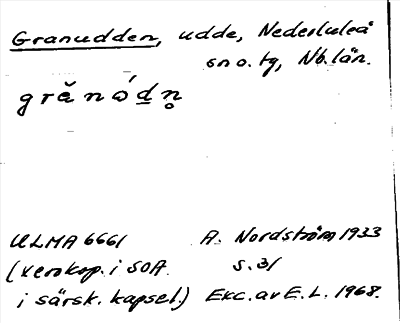 Granudden, udde, Nederluleå
sn o. tg, Nb. län.
grănω´d̲n̥
ULMA 6661 A. Nordström 1933
(xerokop. i SOA s. 31
i särsk. kapsel.) Exc. av E. L. 1968.